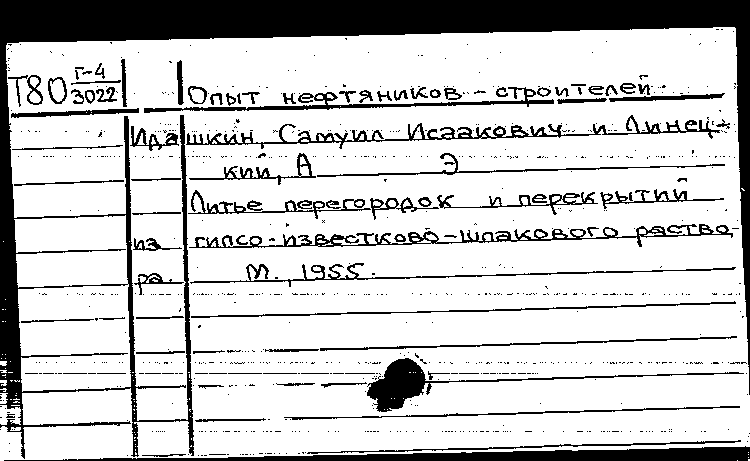 Т80 Г-4/3022 Опыт нефтяников-строителей.
Идашкин, Самуил Исаакович и Линец-
кий, А Э
Литье перегородок и перекрытий
из гипсо-известково-шлакового раство-
ра. М., 1955.